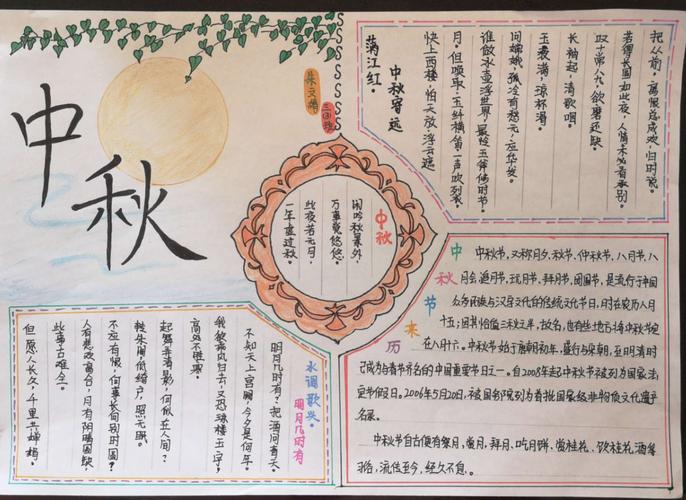 中秋
三③班
满江红。
中秋寄远
快上西楼，怕天放浮云遮
月。但唤取、玉纤横笛一声吹裂。
谁做冰壶浮世界，最怜玉斧修时节。
问嫦娥，孤冷有愁无，应华发。
满，杯滑。
长袖起，清歌咽。
叹十常八九，欲磨还缺。
若得长圆如此夜，人情未必看承别。
把从前，离恨总成欢，归时说。
中秋
闲吟秋景外，
万事觉悠悠。
此夜若无月，
一年虚过秋。
水调歌头。
明月几时有
明月几时有？把酒问青天。
不知天上宫阙，今夕是何年。
我欲乘风归去，又恐琼楼玉宇，
高处不胜寒。
起舞弄清影，何似在人间？
转朱阁，低绮户，照无眠。
不应有恨，何事长向别时圆？
人有悲欢离合，月有阴晴圆缺，
此事古难全。
但愿人长久，千里共婵娟。
中秋节来历
中秋节，又称月夕、秋节、仲秋节，八月节、八
月会、追月节、玩月节、拜月节、团圆节，是流行于中国
众多民族与汉字文化的传统文化节日，时在农历八月
十五；因其恰值三秋之半，故名，也有些地方将中秋节定
在八月十六。中秋节始于唐朝初年，盛行与宋朝，至明清时
已成为与春节齐名的中国重要节日之一。自2008年起中秋节被列为国家法
定节假日。2006年5月20日，被国务院列为首批国家级非物质文化遗产
名录。
中秋节自古便有祭月，赏月，拜月、吃月饼，赏桂花、饮桂花酒等
习俗，流传至今，经久不息。